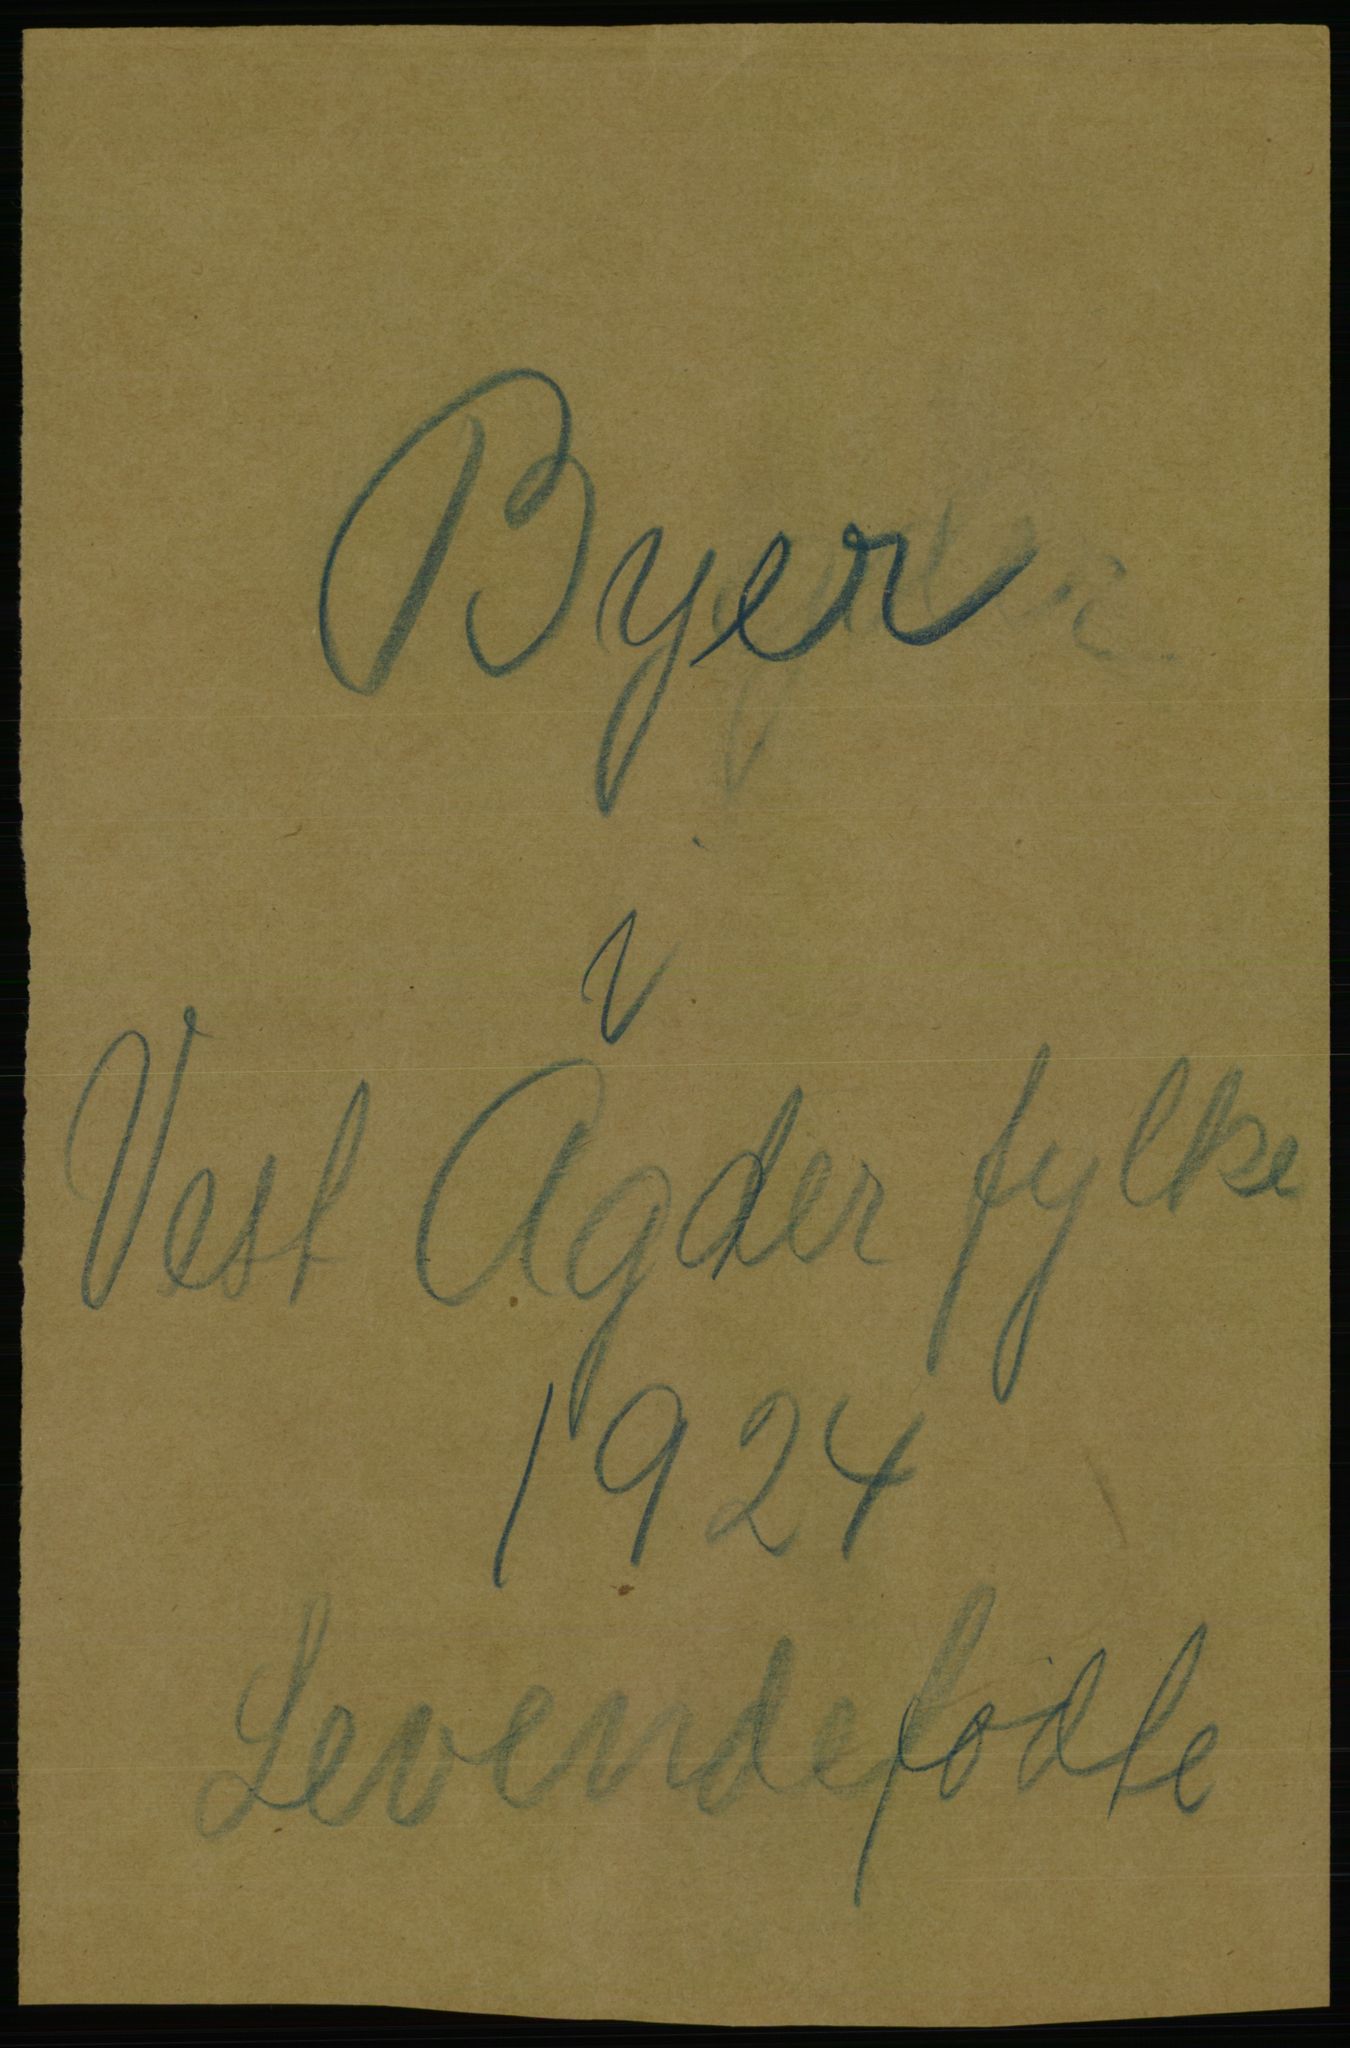 Byer
i
Vest Agder fylke
1924
Levendefødte